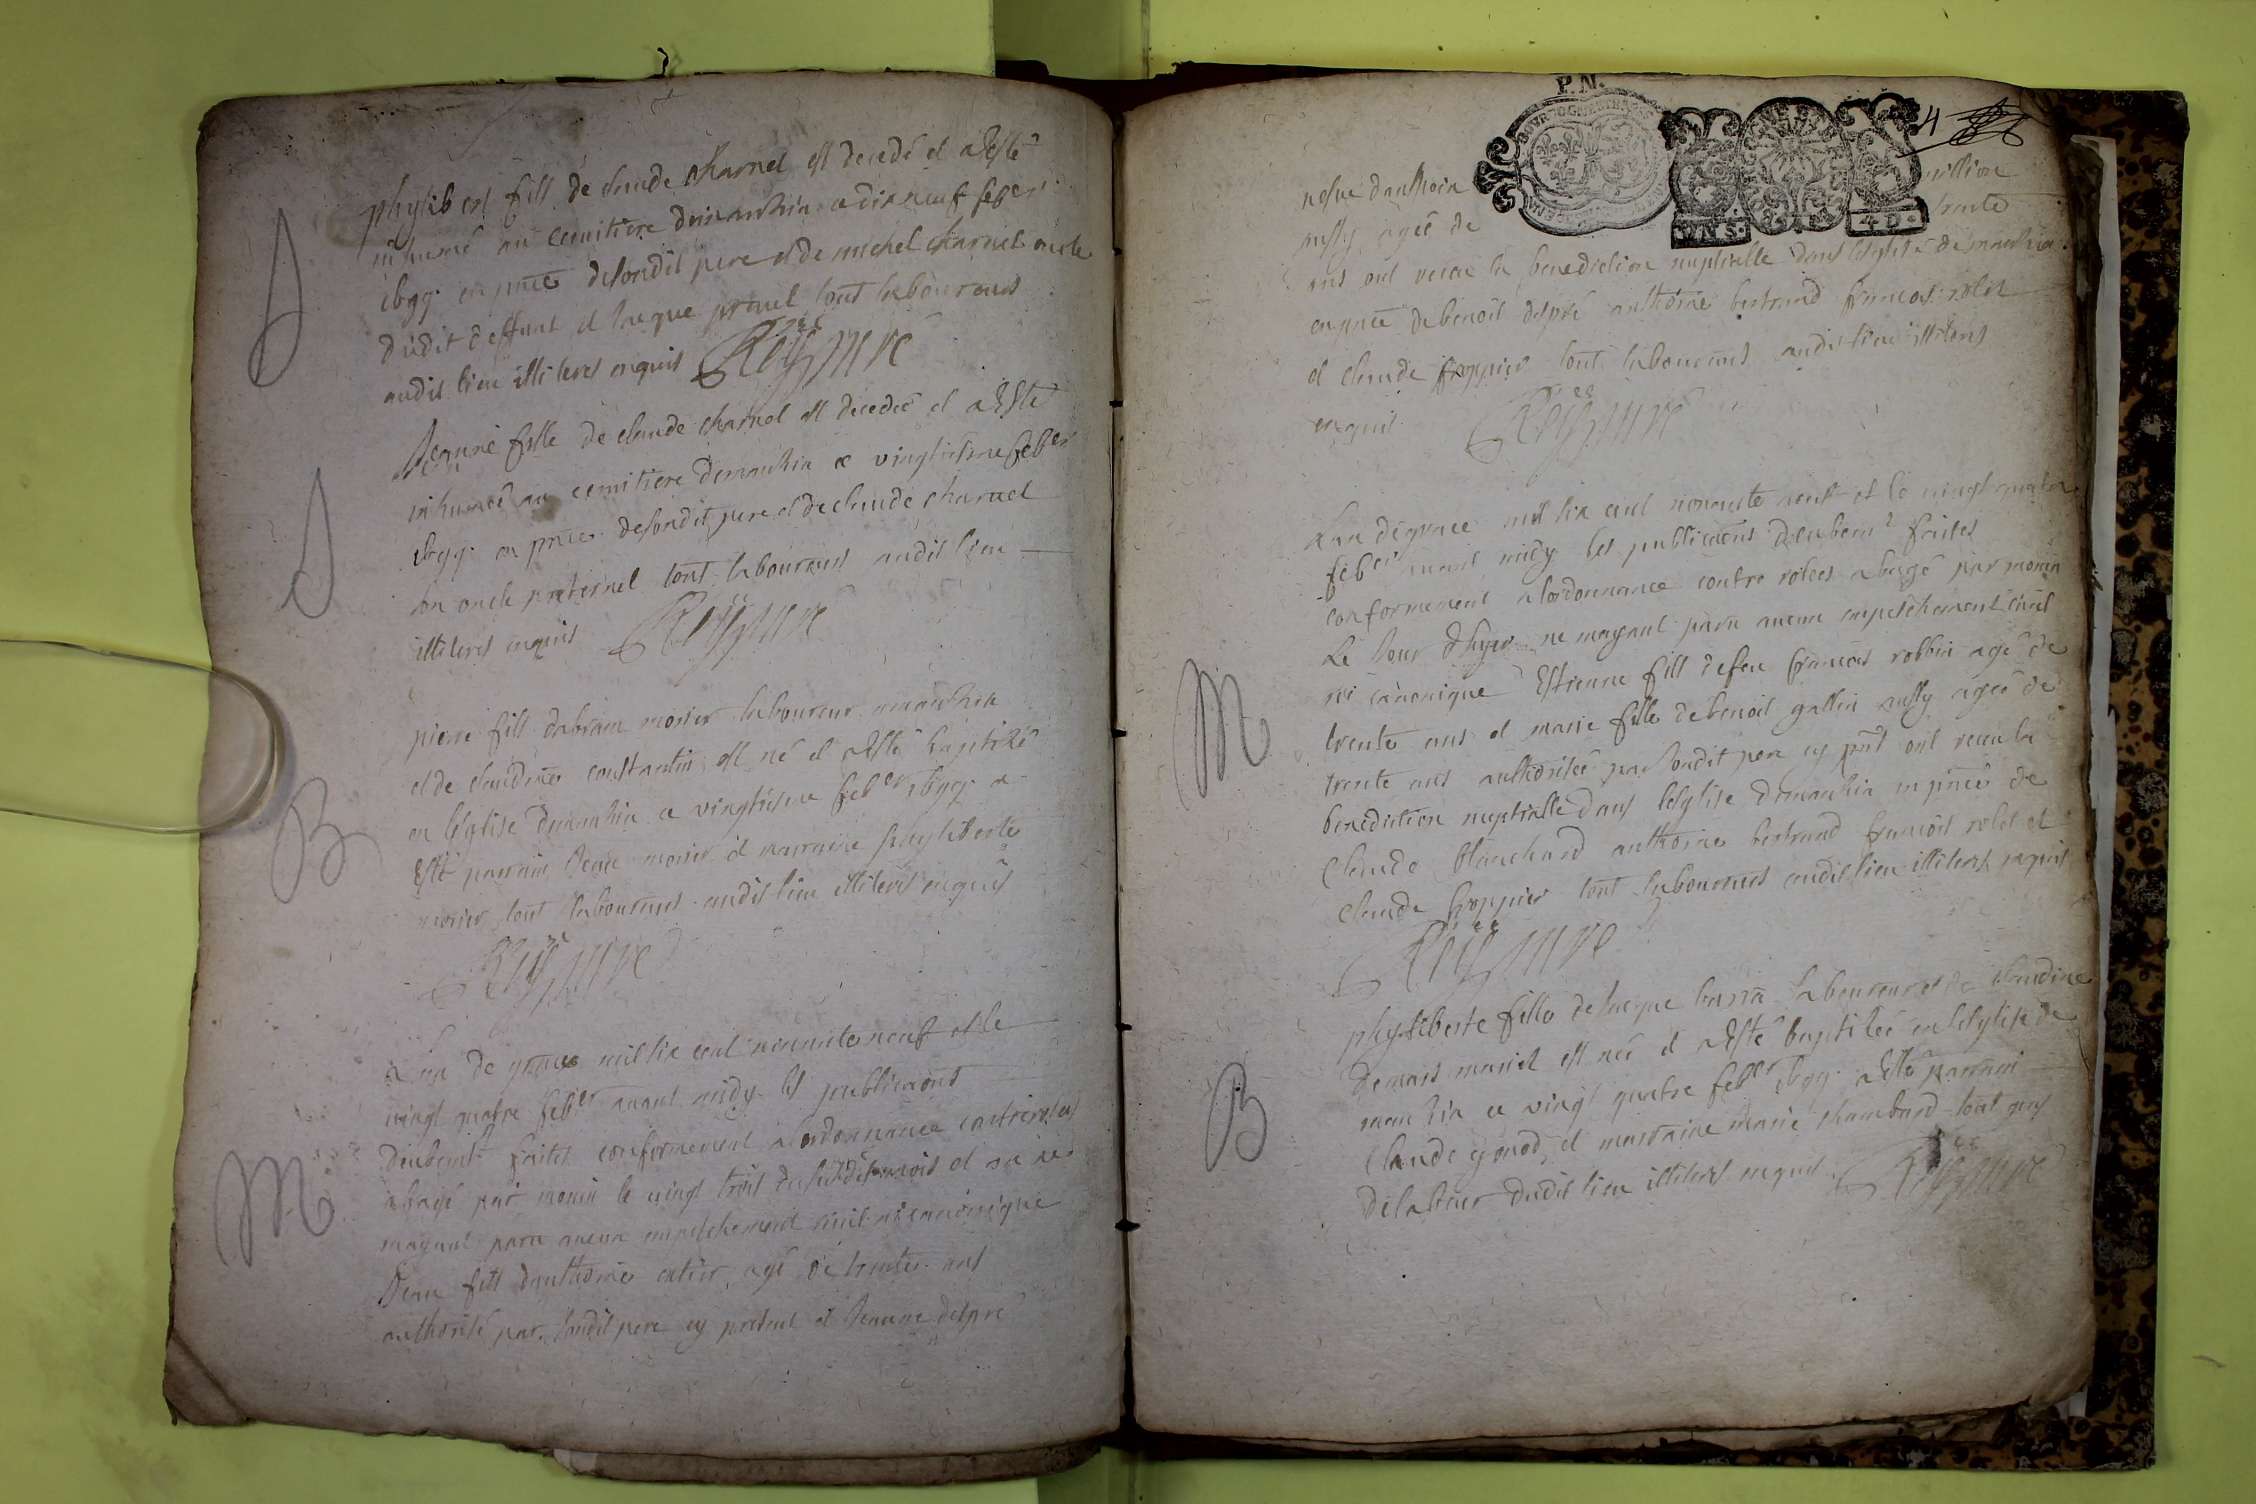 phylibert fils de claude charnel est decedé et a Esté
inhumé au cemitiere demanhin ce dix neuf feber
ibgg. en pnce desondit pere et de michel charnel oncle
dudit deffunt et Jacque pravel tout laboureurs
audit lieu illiteres enquis Reÿ
Jeanne fille de claude charnel est decedeé et a Esté
inhumeé au cemitiere demanhin ce vingtiesme feber
ibgg. en pnce desondit pere et de claude charnel
son oncle paternel tout laboureurs audit lieu
illiteres enquis Reÿ
pierre fils dabram monier laboureur amanhin
et de claudine constantin est né et a Esté baptizé
en leglise demanhin ce vingtiesme feber ibgg. a
Esté parrain Jean monier et marraine phyliberte
monier tout laboureurs audit lieu illiteres enquis
Reÿ
Lan de grace mil six cent nonante neuf et le
vingt quatre feber avant midy les publicaons
faites conformement alordonnance controrolees
abagé par monin le vingt trois dususdit mois et an ne
mayant paru aucun empeschement civil ni canonique
Jean fils danthoine catier agé de trente ans
authorisé par sondit pere cy present et Jeanne despré
P. N.
4
4 D.
aussy ageé de trente
ans ont receu la benediction nuptialle dans leglise demanhin
en pnce de benoit despré anthoine bertrand francois rolet
et claude froppier tout laboureurs audit lieu illiteres
enquis Reÿ
Lan degrace mil six cent nonante neuf et le vingt quatre
feber avant midy les publicaons faites
conformement alordonnance contre rolees abagé par monin
Le Jour dhyer ne mayant paru aucun empeschement civil
ni canonique Estienne fils defeu francois robbin agé de
trente ans et marie fille de benoit gallin aussy ageé de
trente ans authoriseé par sondit pere cy pnt ont receu la
benediction nuptialle dans leglise demanhin en pnce de
claude blanchard anthoine bertrand francois rolet et
claude froppier tout laboureurs audit lieu illiteres enquis
Reÿ
phyliberte fille de Jacque laboureur et de claudine
demars mariés est neé et a Esté baptiseé en leglise de
manhin ce vingt quatre feber ibgg. a Esté parrain
claude gonod et marraine marie chambard tout gens
delabeur dudit lieu illiteres enquis Reÿ